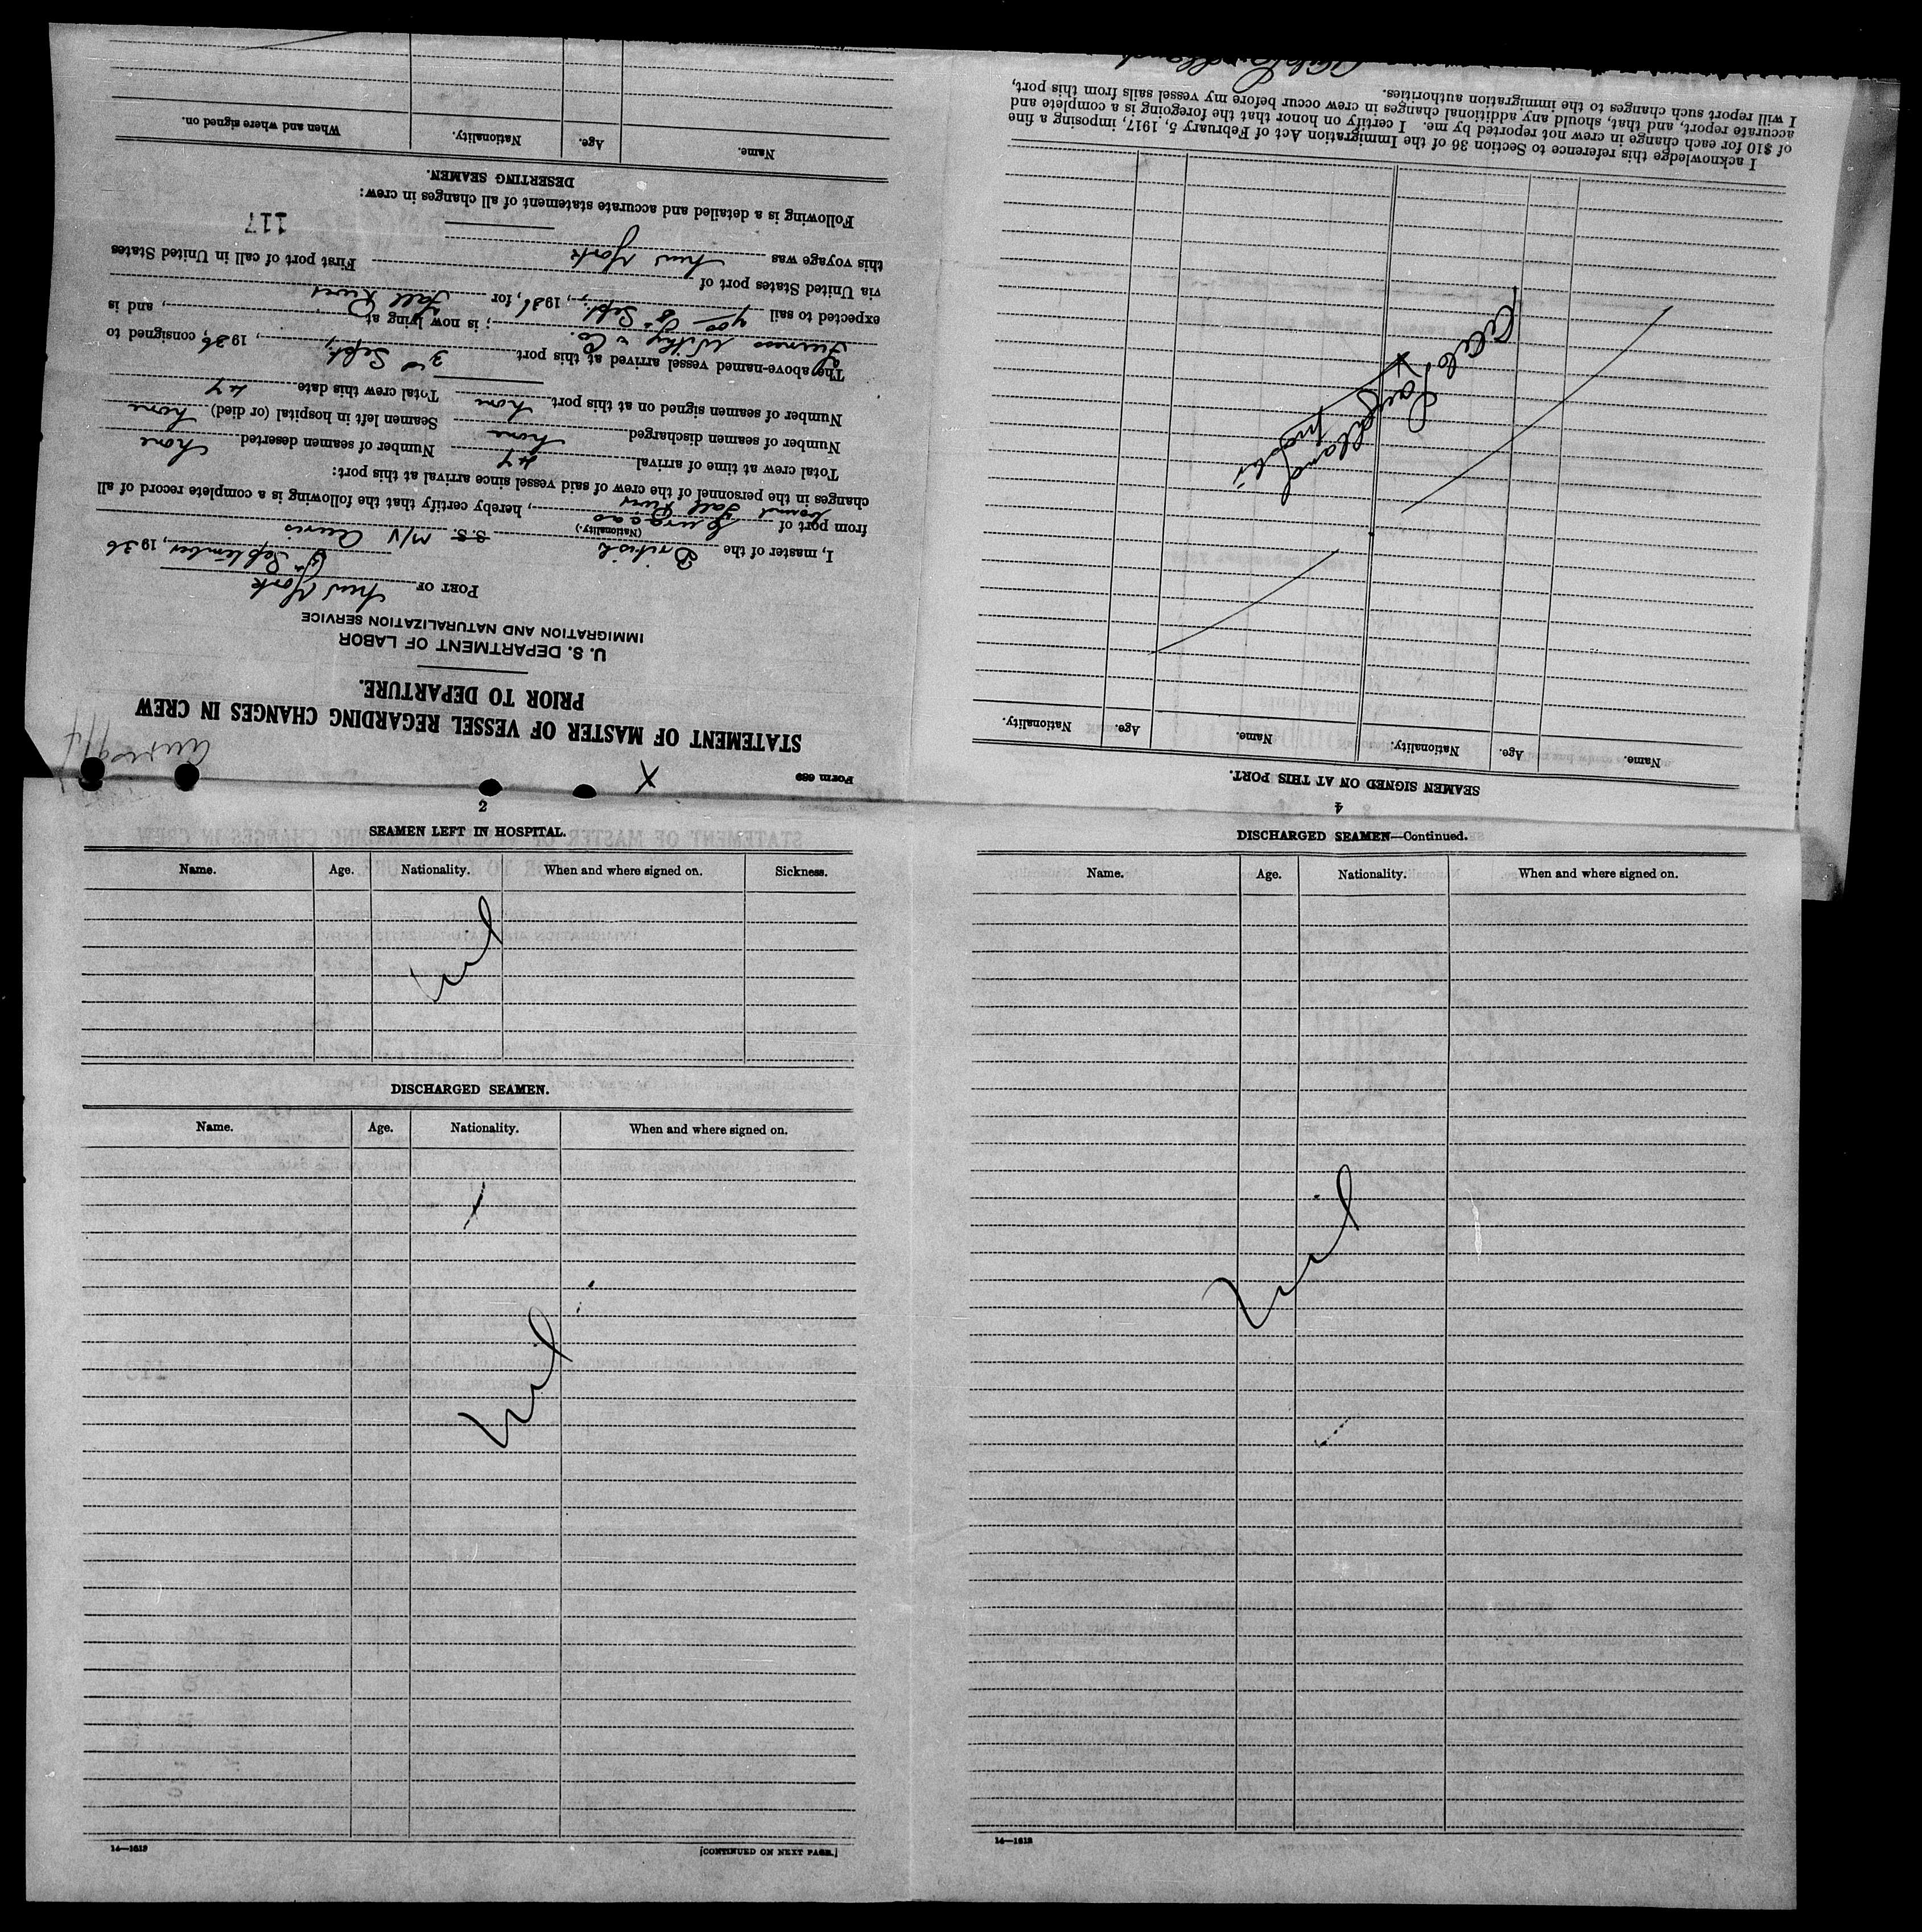 Form 689
STATEMENT OF MASTER OF VESSEL REGARDING CHANGES IN CREW
PRIOR TO DEPARTURE.
U. S. DEPARTMENT OF LABOR
IMMIGRATION AND NATURALIZATION SERVICE
PORT OF New York
September, 1936
I, master of the British S.S. M/V Auris
(Nationality.)
from port of Curacao bound Fall River, hereby certify that the following is a complete record of all
changes in the personnel of the crew of said vessel since arrival at this port:
Total crew at time of arrival 47 Number of seamen deserted none
Number of seamen discharged none Seamen left in hospital (or died) none
Number of seamen signed on at this port none Total crew this date 47
The above-named vessel arrived at this port 3rd Sept., 1936, consigned to
Furness Withy & Co.; is now lying at, and is
expected to sail Sept., 1936, for Fall River
via United States port of First port of call in United States
this voyage was New York
117
Following is a detailed and accurate statement of all changes in crew:
DESERTING SEAMEN.
Name. Age. Nationality. When and where signed on.
4
SEAMEN SIGNED ON AT THIS PORT.
Name. Age. Nationality. Name. Age. Nationality.
I acknowledge this reference to Section 36 of the Immigration Act of February 5, 1917, imposing a fine
of $10 for each change in crew not reported by me. I certify on honor that the foregoing is a complete and
accurate report, and that, should any additional changes in crew occur before my vessel sails from this port,
I will report such changes to the immigration authorities.
2
SEAMEN LEFT IN HOSPITAL.
Name. Age. Nationality. When and where signed on. Sickness.
nil
DISCHARGED SEAMEN.
Name. Age. Nationality. When and where signed on.
Nil
14—1613
[CONTINUED ON NEXT PAGE.]
DISCHARGED SEAMEN—Continued.
Name. Age. Nationality. When and where signed on.
Nil
14—1613